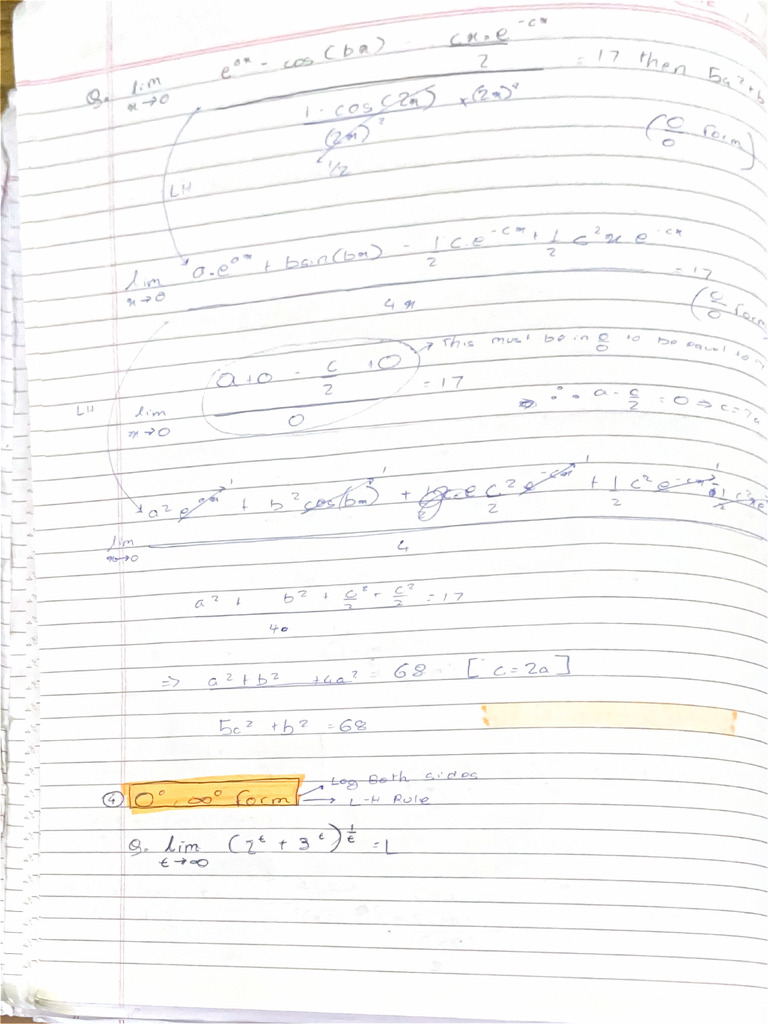 Q. lim x→0 e^ax - cos(bx) - cx.e^-cx / 2 = 17 then 5a² + b
1 - cos(2x) / (2x)² × (2x)²
1/2
(0/0 form)
LH
lim x→0 a.e^ax + bsin(bx) - 1/2 c.e^-cx + 1/2 c²x e^-cx / 4x = 17
(0/0 form
a+0 - c/2 + 0 → This must be in 0/0 to be equal to
LH lim x→0 / 0 = 17
∴ a - c/2 = 0 ⇒ c = 2a
lim x→0 a² e^ax + b² cos(bx) + c²/2 e^-cx + 1/2 c² e^-cx / 4
a² + b² + c²/2 + c²/2 = 17
4
⇒ a² + b² + 4a² = 68 [c = 2a]
5a² + b² = 68
④ 0°, ∞° form → Log Both sides
→ L-H Rule
Q. lim t→∞ (2^t + 3^t)^1/t = L